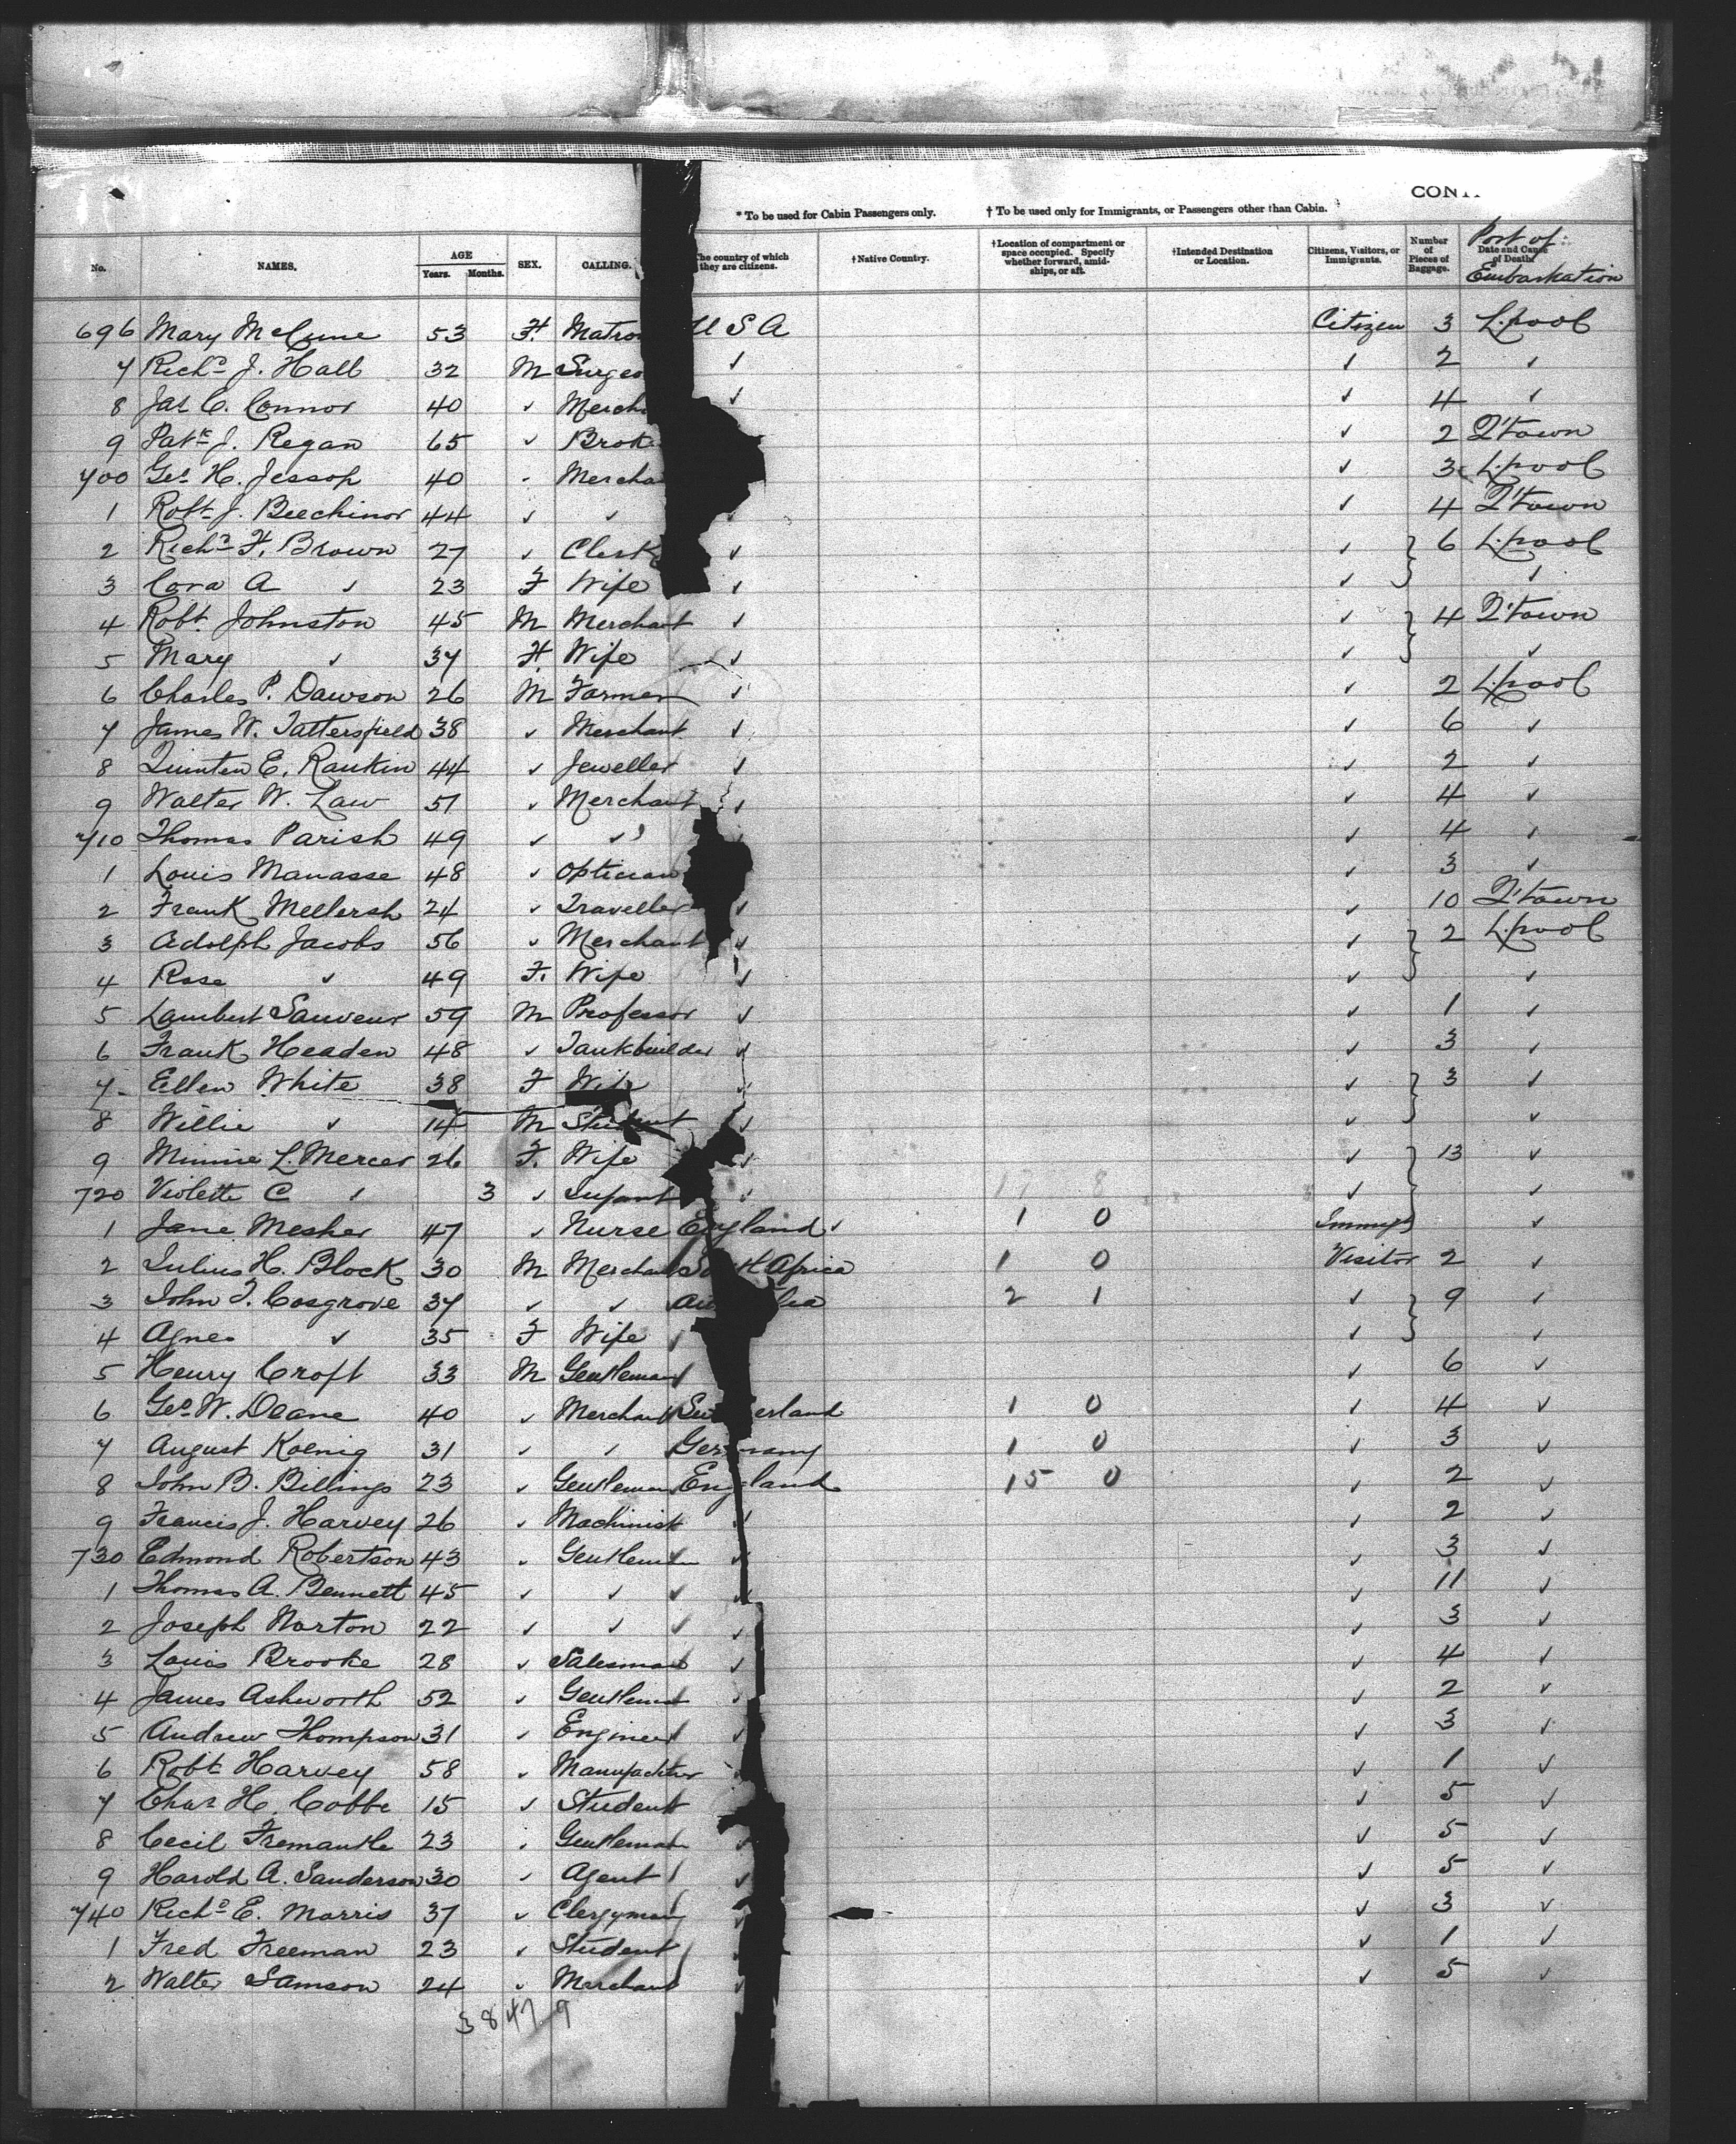 CONT
* To be used for Cabin Passengers only. † To be used only for Immigrants, or Passengers other than Cabin.
No. NAMES. AGE Years. Months. SEX. CALLING. The country of which they are citizens. †Native Country. †Location of compartment or space occupied. Specify whether forward, amidships, or aft. †Intended Destination or Location. Citizens, Visitors, or Immigrants. Number of Pieces of Baggage. Date and Cause of Death. Port of: Embarkation
696 Mary McCune 53 F. Matro U S A Citizen 3 L.pool
7 Richd J. Hall 32 M Surgeo ✓ ✓ 2 ✓
8 Jas C. Connor 40 ✓ Mercha ✓ ✓ 4 ✓
9 Patk J. Regan 65 ✓ Broke ✓ 2 Q'town
700 Geo H. Jessop 40 ✓ Mercha ✓ 3 L.pool
1 Robt J. Beechinor 44 ✓ ✓ ✓ ✓ 4 Q'town
2 Richd F. Brown 27 ✓ Clerk ✓ ✓ 6 L.pool
3 Cora A ✓ 23 F Wife ✓ ✓ ✓
4 Robt Johnston 45 M Merchant ✓ ✓ 4 Q'town
5 Mary ✓ 37 F. Wife ✓ ✓ ✓
6 Charles P. Dawson 26 M Farmer ✓ ✓ 2 L.pool
7 James W. Tattersfield 38 ✓ Merchant ✓ ✓ 6 ✓
8 Quinten E. Rankin 44 ✓ Jeweller ✓ ✓ 2 ✓
9 Walter W. Law 51 ✓ Merchant ✓ ✓ 4 ✓
710 Thomas Parish 49 ✓ ✓ ✓ 4 ✓
1 Louis Manasse 48 ✓ Optician ✓ 3 ✓
2 Frank Mellersh 24 ✓ Traveller ✓ ✓ 10 Q'town
3 Adolph Jacobs 56 ✓ Merchant ✓ ✓ 2 L.pool
4 Rosa ✓ 49 F. Wife ✓ ✓ ✓
5 Lambert Sauveur 59 M Professor ✓ ✓ 1 ✓
6 Frank Headen 48 ✓ Tankbuilder ✓ ✓ 3 ✓
7 Ellen White 38 F Wife ✓ ✓ 3 ✓
8 Willie ✓ 14 M Student ✓ ✓ ✓
9 Minnie L. Mercer 26 F. Wife ✓ ✓ 13 ✓
720 Violette C ✓ 3 ✓ Infant ✓ 17 8 ✓ ✓
1 Jane Mesher 47 ✓ Nurse England ✓ 1 0 Immigt ✓
2 Julius H. Block 30 M Merchant South Africa 1 0 Visitor 2 ✓
3 John T. Cosgrove 37 ✓ ✓ Au lia 2 1 ✓ 9 ✓
4 Agnes ✓ 35 F Wife ✓ ✓
5 Henry Croft 33 M Gentleman ✓ 6 ✓
6 Geo W. Deane 40 ✓ Merchant Sw erland 1 0 ✓ 4 ✓
7 August Koenig 31 ✓ ✓ Germany 1 0 ✓ 3 ✓
8 John B. Billings 23 ✓ Gentleman England 15 0 ✓ 2 ✓
9 Francis J. Harvey 26 ✓ Machinist ✓ ✓ 2 ✓
730 Edmond Robertson 43 ✓ Gentleman ✓ ✓ 3 ✓
1 Thomas A. Bennett 45 ✓ ✓ ✓ ✓ 11 ✓
2 Joseph Norton 22 ✓ ✓ ✓ ✓ 3 ✓
3 Louis Brooke 28 ✓ Salesman ✓ ✓ 4 ✓
4 James Ashworth 52 ✓ Gentleman ✓ ✓ 2 ✓
5 Andrew Thompson 31 ✓ Engineer ✓ ✓ 3 ✓
6 Robt Harvey 58 ✓ Manufacturer ✓ ✓ 1 ✓
7 Chas H. Cobbe 15 ✓ Student ✓ 5 ✓
8 Cecil Fremantle 23 ✓ Gentleman ✓ ✓ 5 ✓
9 Harold A. Sanderson 30 ✓ Agent ✓ ✓ 5 ✓
740 Richd E. Morris 37 ✓ Clergyman ✓ ✓ 3 ✓
1 Fred Freeman 23 ✓ Student ✓ ✓ 1 ✓
2 Walter Samson 24 ✓ Merchant ✓ ✓ 5 ✓
38 47 9